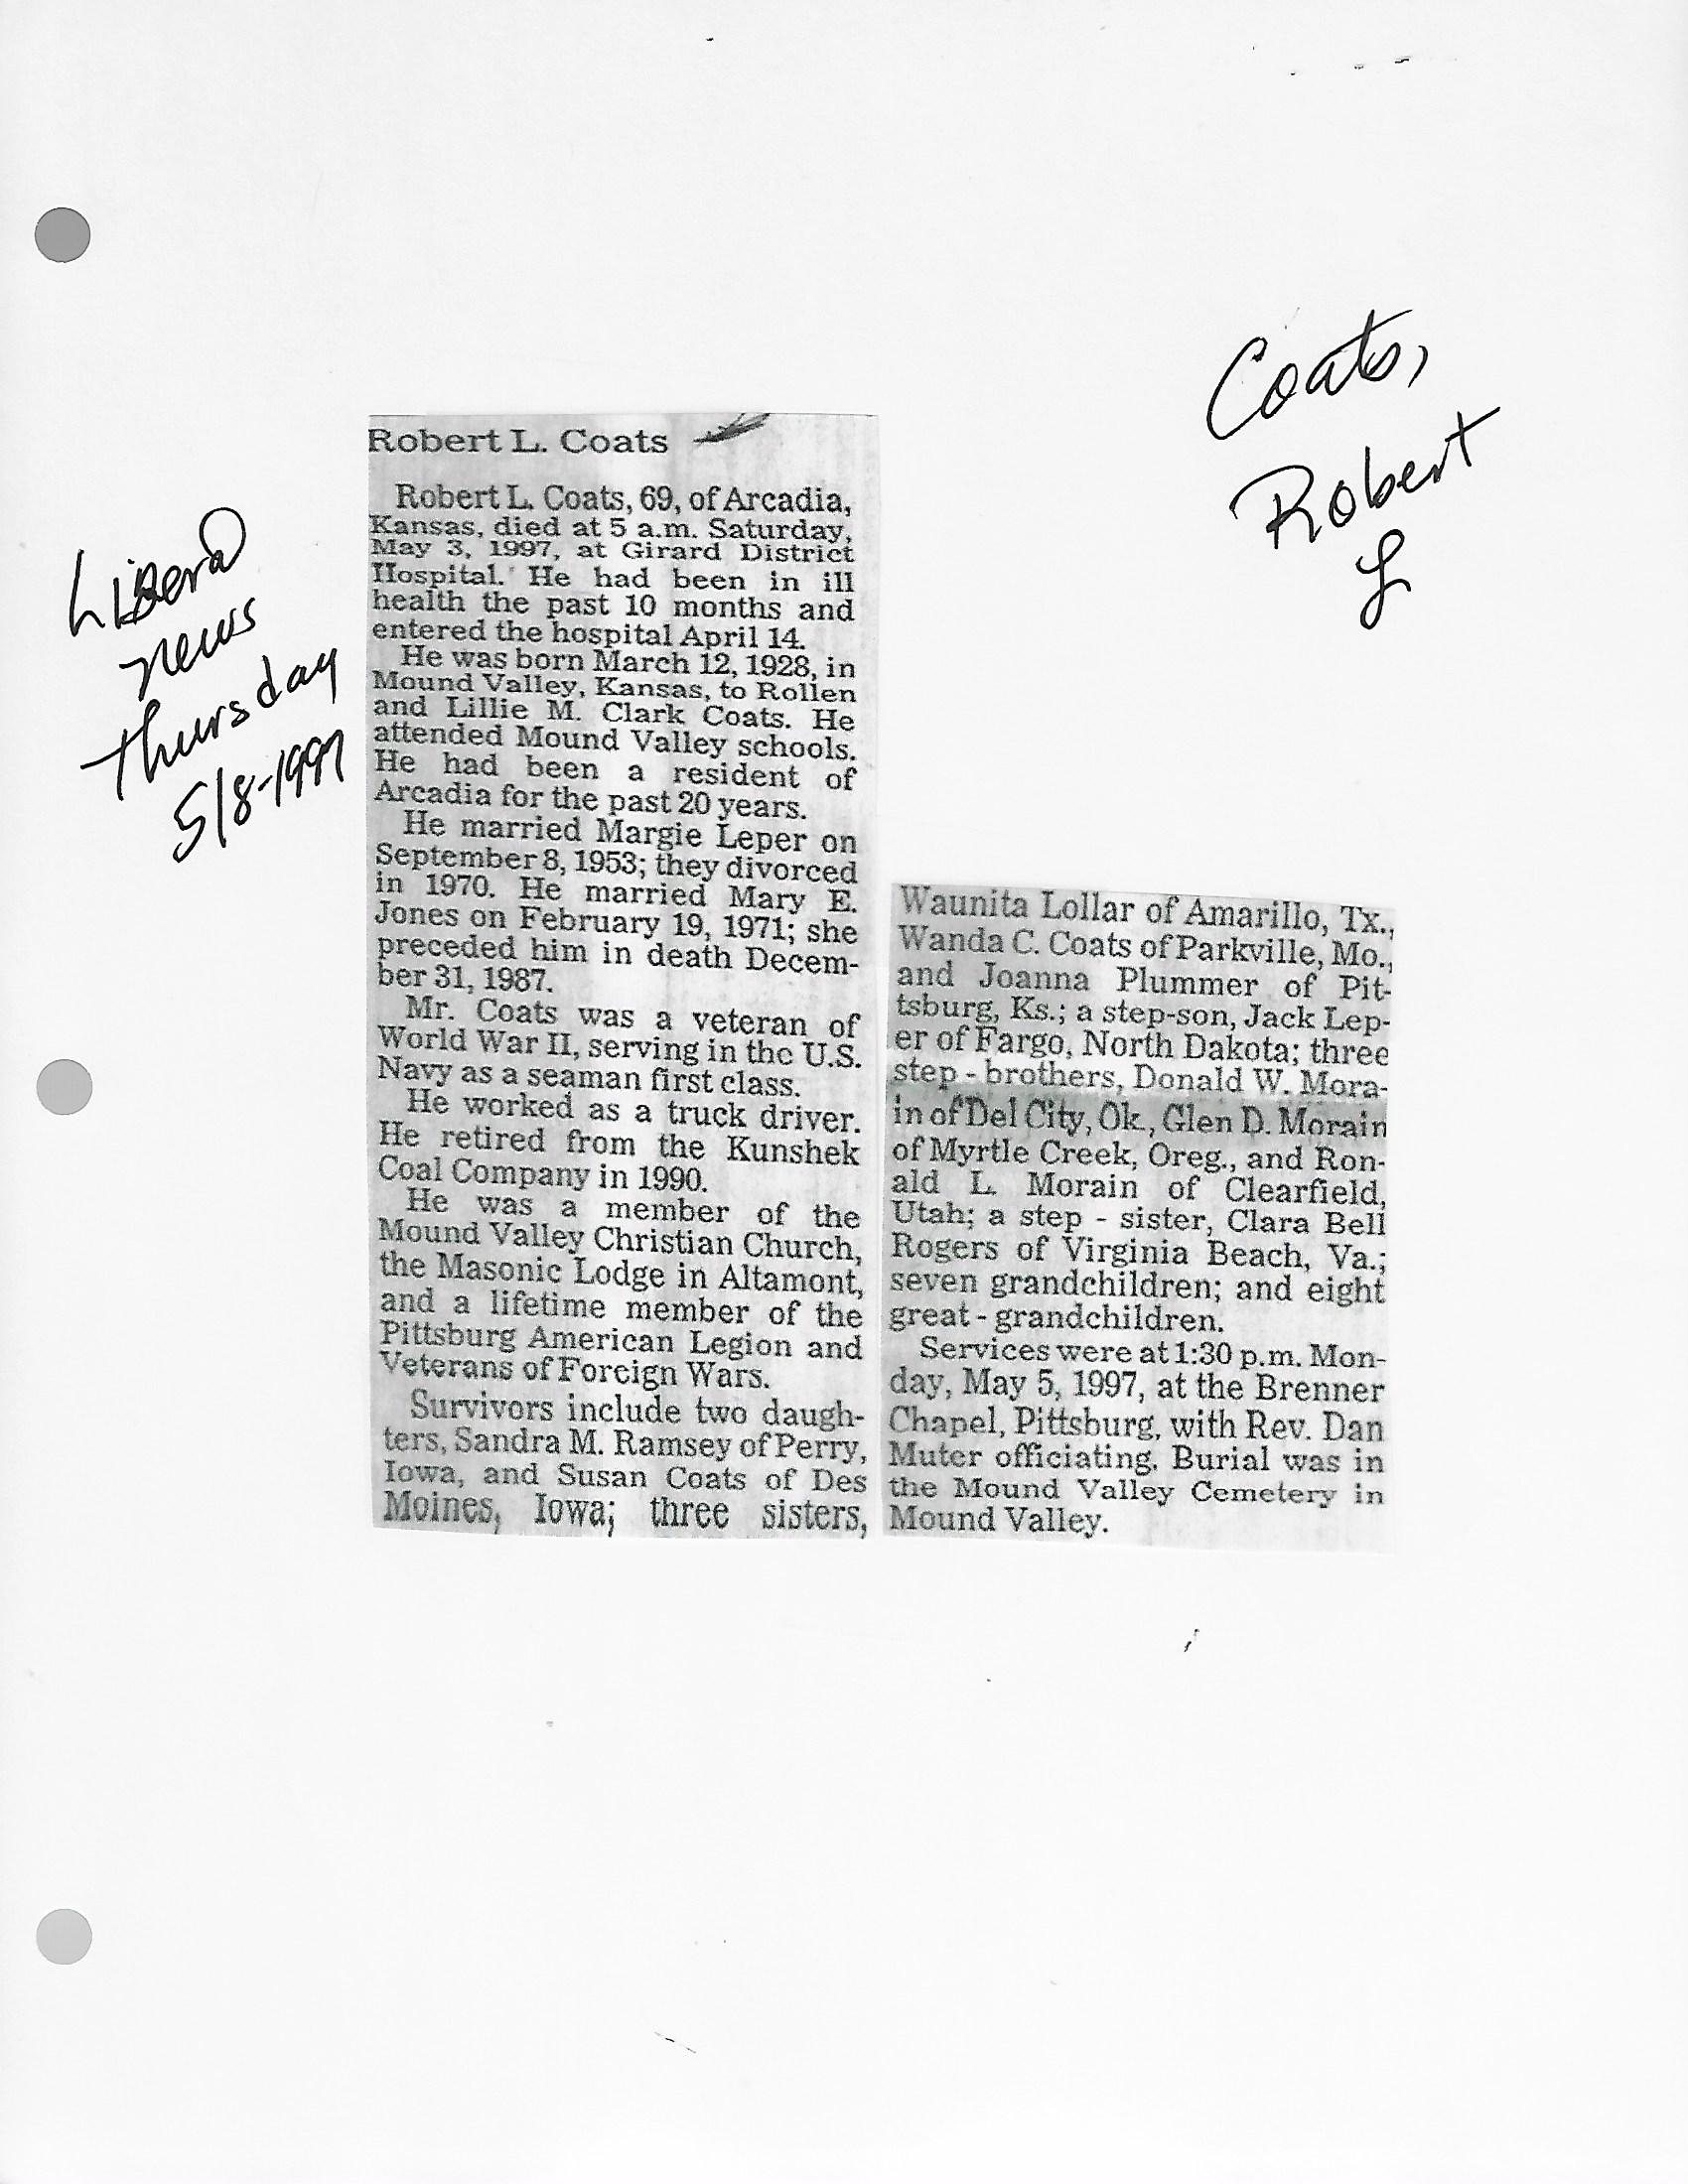 Coats,
Robert
L
Liberal
news
Thursday
5/8-1997
Robert L. Coats
Robert L. Coats, 69, of Arcadia,
Kansas, died at 5 a.m. Saturday,
May 3, 1997, at Girard District
Hospital. He had been in ill
health the past 10 months and
entered the hospital April 14.
He was born March 12, 1928, in
Mound Valley, Kansas, to Rollen
and Lillie M. Clark Coats. He
attended Mound Valley schools.
He had been a resident of
Arcadia for the past 20 years.
He married Margie Leper on
September 8, 1953; they divorced
in 1970. He married Mary E.
Jones on February 19, 1971; she
preceded him in death Decem-
ber 31, 1987.
Mr. Coats was a veteran of
World War II, serving in the U.S.
Navy as a seaman first class.
He worked as a truck driver.
He retired from the Kunshek
Coal Company in 1990.
He was a member of the
Mound Valley Christian Church,
the Masonic Lodge in Altamont,
and a lifetime member of the
Pittsburg American Legion and
Veterans of Foreign Wars.
Survivors include two daugh-
ters, Sandra M. Ramsey of Perry,
Iowa, and Susan Coats of Des
Moines, Iowa; three sisters,
Waunita Lollar of Amarillo, Tx.,
Wanda C. Coats of Parkville, Mo.,
and Joanna Plummer of Pit-
tsburg, Ks.; a step-son, Jack Lep-
er of Fargo, North Dakota; three
step - brothers, Donald W. Mora-
in of Del City, Ok., Glen D. Morain
of Myrtle Creek, Oreg., and Ron-
ald L. Morain of Clearfield,
Utah; a step - sister, Clara Bell
Rogers of Virginia Beach, Va.;
seven grandchildren; and eight
great - grandchildren.
Services were at 1:30 p.m. Mon-
day, May 5, 1997, at the Brenner
Chapel, Pittsburg, with Rev. Dan
Muter officiating. Burial was in
the Mound Valley Cemetery in
Mound Valley.